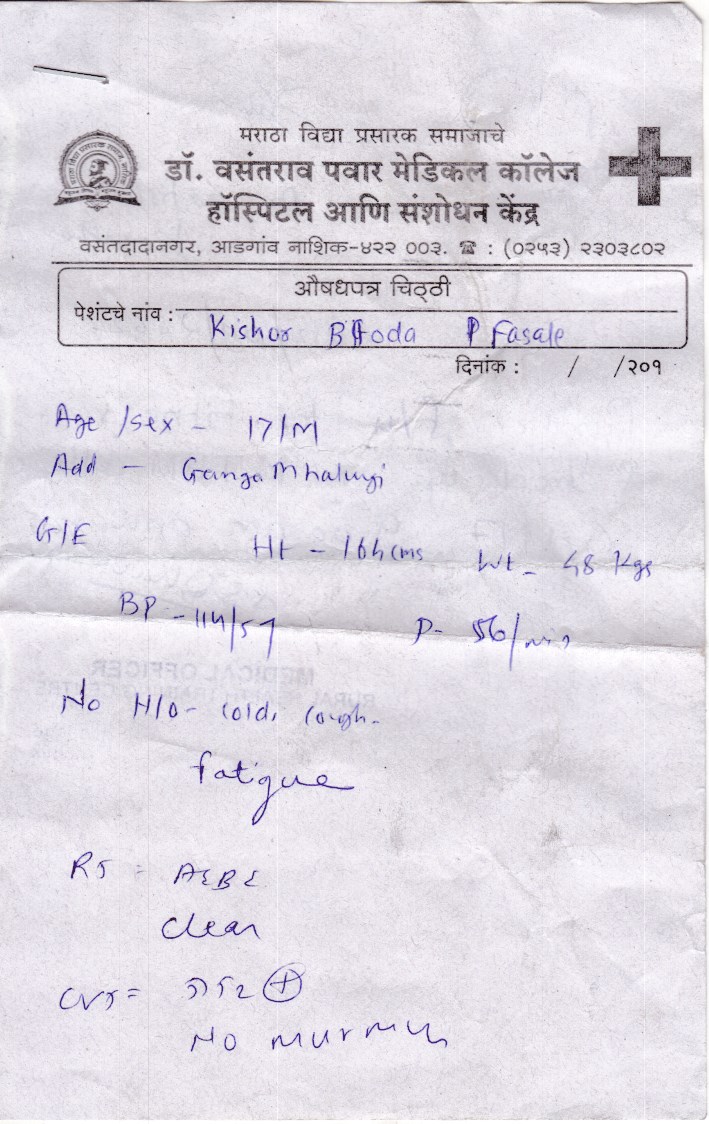 मराठा विद्या प्रसारक समाजाचे
डॉ. वसंतराव पवार मेडिकल कॉलेज
हॉस्पिटल आणि संशोधन केंद्र
वसंतदादानगर, आडगांव नाशिक-४२२ ००३. ☎ : (०२५३) २३०३८०२
औषधपत्र चिठ्ठी
पेशंटचे नांव : Kishor
दिनांक : / /२०१
Age /sex - 17/M
Add - Ganga Mhalungi
G/E Ht - 164 cms Wt - 48 Kgs
BP - 114/57 P- 56/min
MEDICAL OFFICER
No H/O - cold, cough.
fatigue
RS = AEBE
clear
CVS = S1S2 ⊕
No murmur